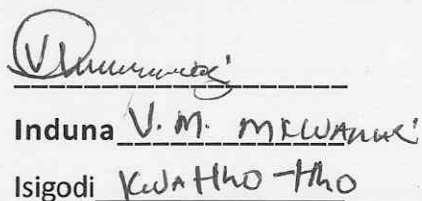 Induna V. M. MKWANAZI
Isigodi KWAHHO-HHO